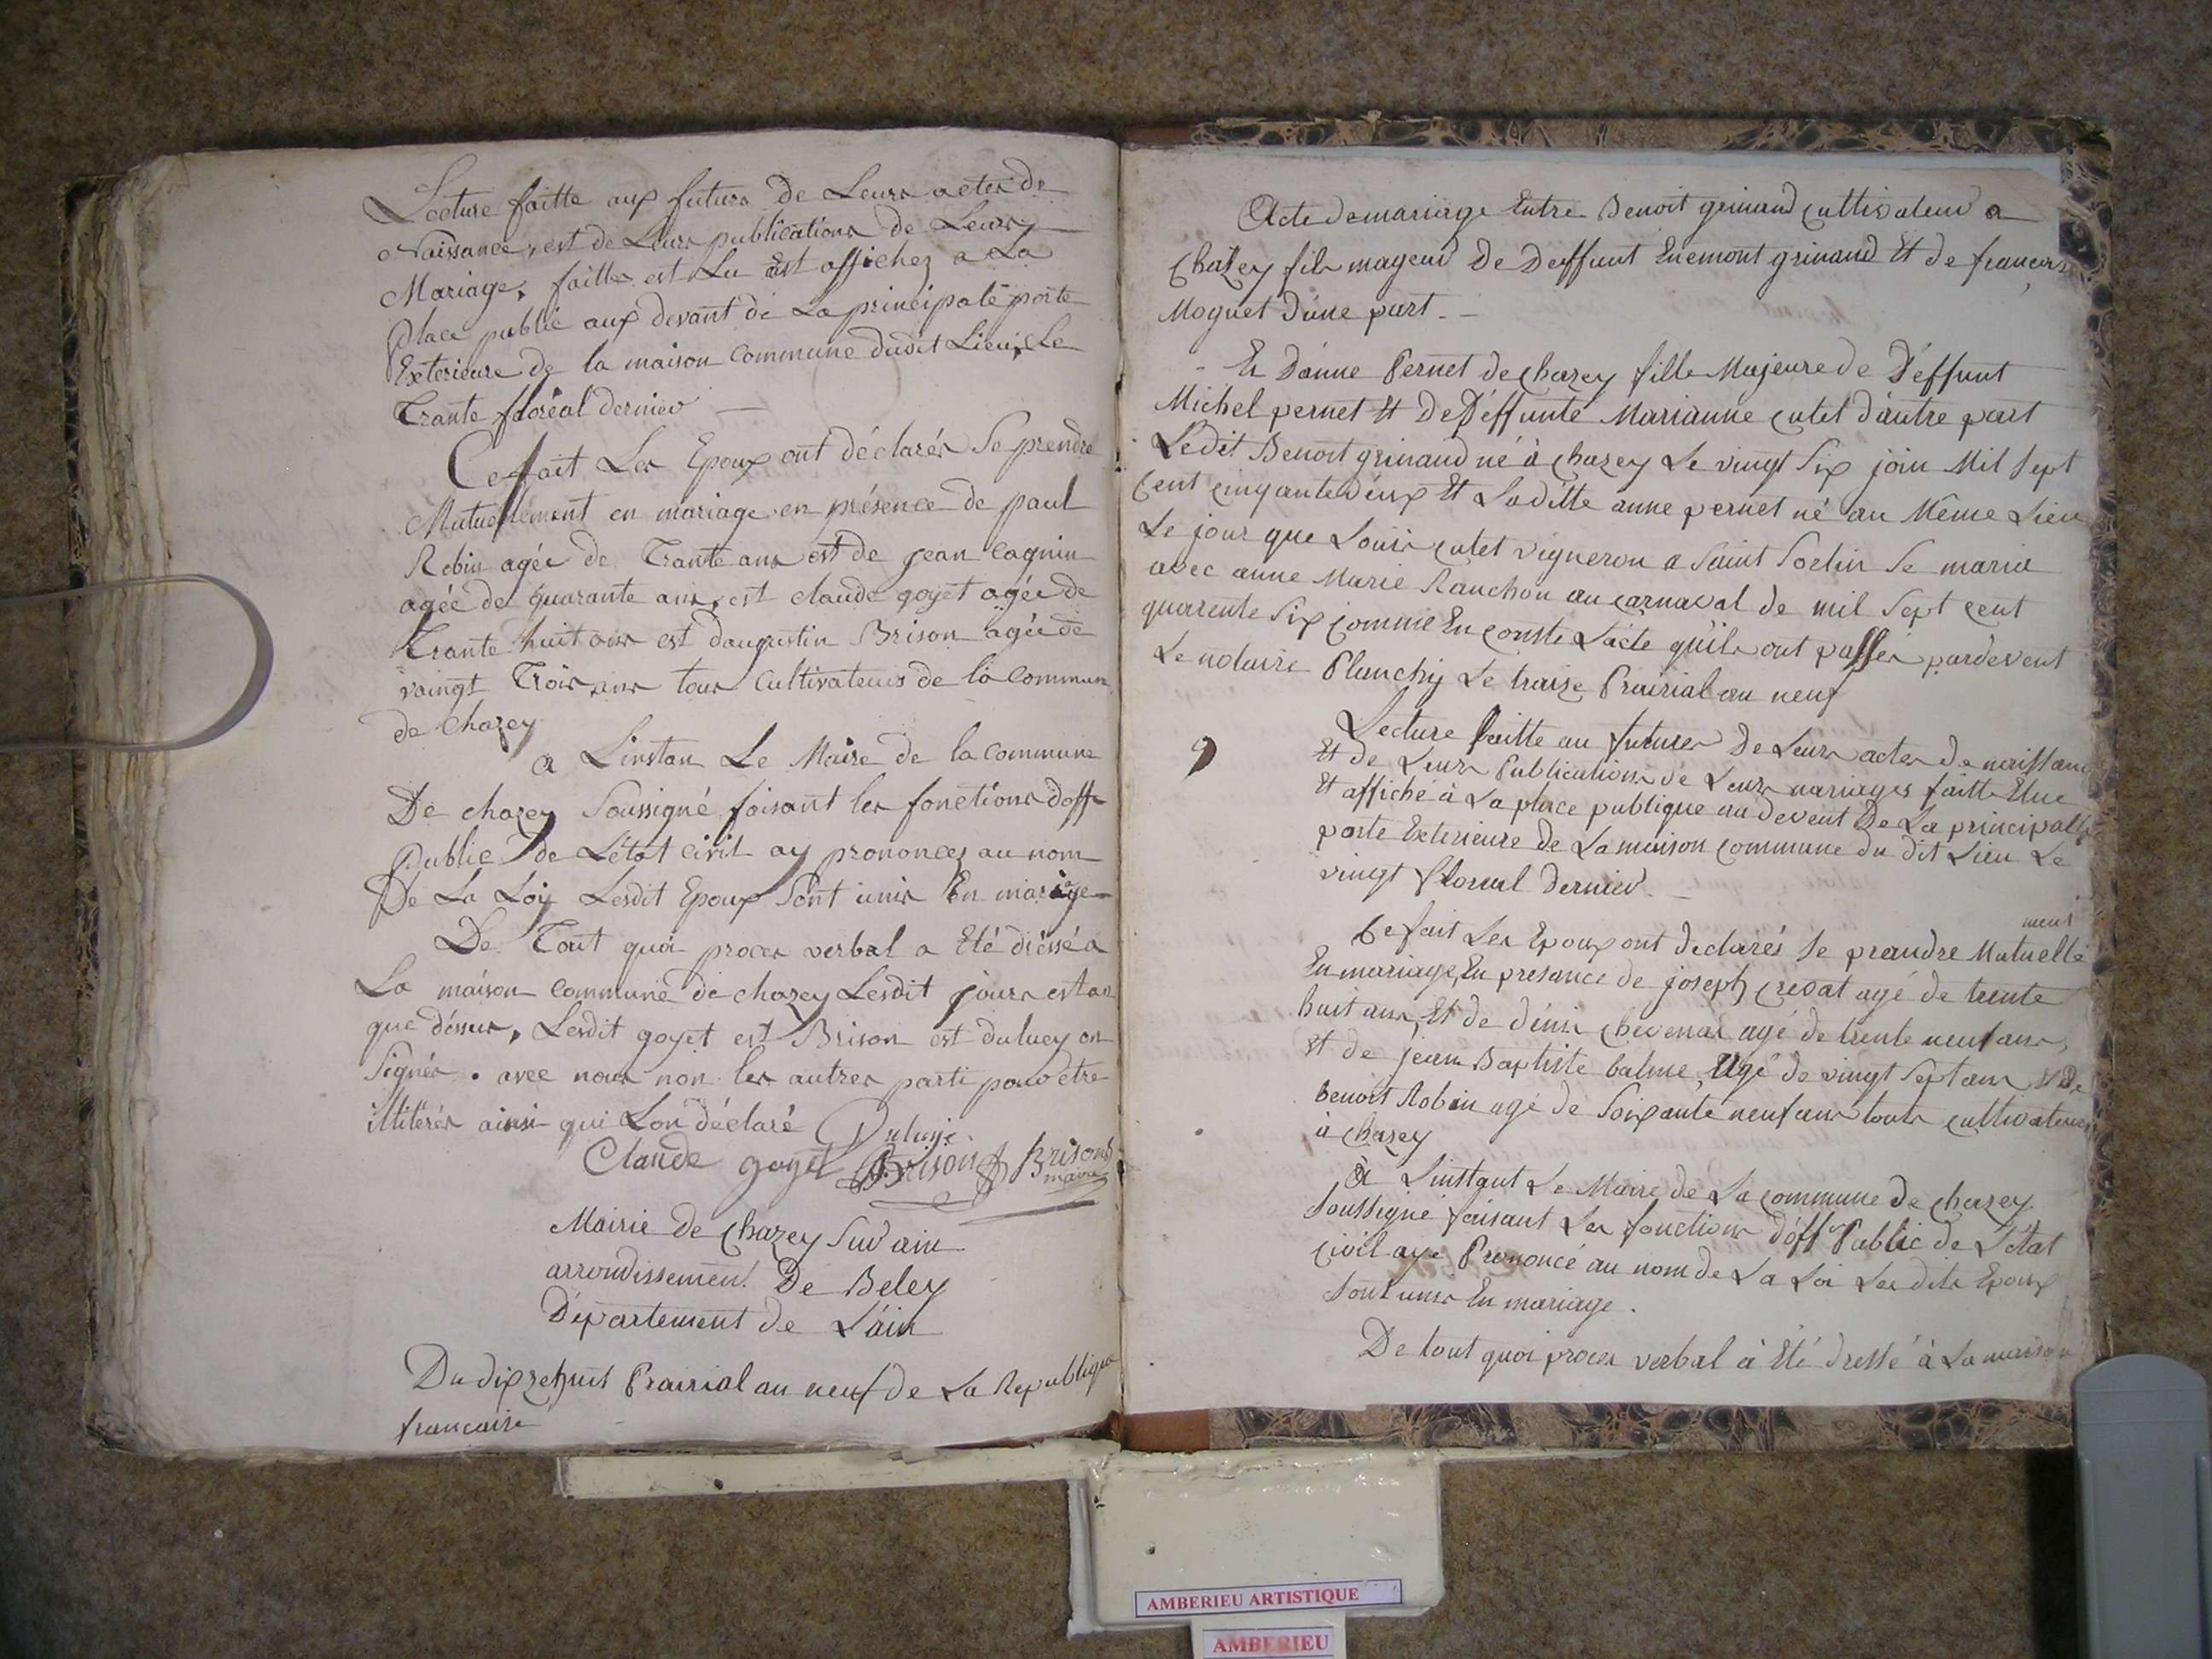 Lecture faitte aux futurs de Leurs actes de
Naissance, est de Leurs publications de Leurs
Mariage, faitte est Lu est affichez a La
Place public aux devant de La principale porte
Exterieure de la maison Commune dudit Lieu, Le
Trante floréal dernier
Ce fait Les Epoux ont déclarés Se prendre
Mutuellement en mariage en présence de paul
Robin agée de Trante ans est de jean Cagnin
agée de quarante ans, est claude goyet agée de
Trante huit ans est daugustin Brison agée de
vaingt Trois ans tous Cultivateurs de la Commun
de Chazey
a Linstan Le Maire de la Commune
De chazey Soussigné faisant les fonctions doffr
Public de Létat Civil ay prononcez au nom
De La Loy Lesdit Epoux Sont unis En mariage
De Tout quoi proces verbal a Eté dréssé a
La maison Commune de chazey Lesdit jours est an
que déssus, Lesdit goyet est Brison est duluey on
Signés. avec nous non les autres parti pour être
illitérés ainsi qui Lon déclaré
Claude goyet Brison Brison
maire
Mairie de Chazey Sur ain
arrondissement De Beley
Département de L'ain
Du dix zehuit Prairial an neuf de La Republique
francaise
Acte de mariage Entre Benoit grinand Cultivateur a
Chazey fils mageur De Deffunt Enemont grinand Et de francois
Moguet D'une part
Et D'anne Pernet de Chazey fille Majeure de D'effunt
Michel pernet Et De D'effunte Marianne Cutet d'autre part
Ledit Benoit grinand né à Chazey Le vingt Six join Mil Sept
Cent Cinquante deux Et Laditte anne pernet né au Même Lieu
Le jour que Louis Cutet vigneron a Saint Sorlin Se maria
avec anne Marie Ranchon au Carnaval de mil Sept Cent
quarente Six Comme En Conste L'acte qu'ils ont passés pardevent
Le notaire Planchy Le traize Prairial an neuf
Lecture faitte au futures De Leurs actes de naissance
Et de Leurs Publications de Leurs mariages faitte Elue
Et affiché à La place publique au devent De La principalle
porte Exterieure de La maison Commune du dit Lieu Le
vingt floreal dernier
ment
Ce fait Les Epoux ont declarés Se prandre Mutuelle
En mariage, En presance de joseph Crevat agé de trente
huit ans, Et de dénis Chevenas agé de trente neuf ans,
Et de jean Baptiste balme, Agé de vingt Sept ans Et De
Benoit Robin agé de Soixante neuf ans touts Cultivateurs
à Chazey
À Linstant Le Maire de La Commune de Chazey
Soussigné faisant Les fonctions d'offr Public de L'état
Civil aye Prononcé au nom de La Loi Les dits Epoux
Sont unis En mariage.
De tout quoi proces verbal à Eté dressé à La maison
AMBERIEU ARTISTIQUE
AMBERIEU